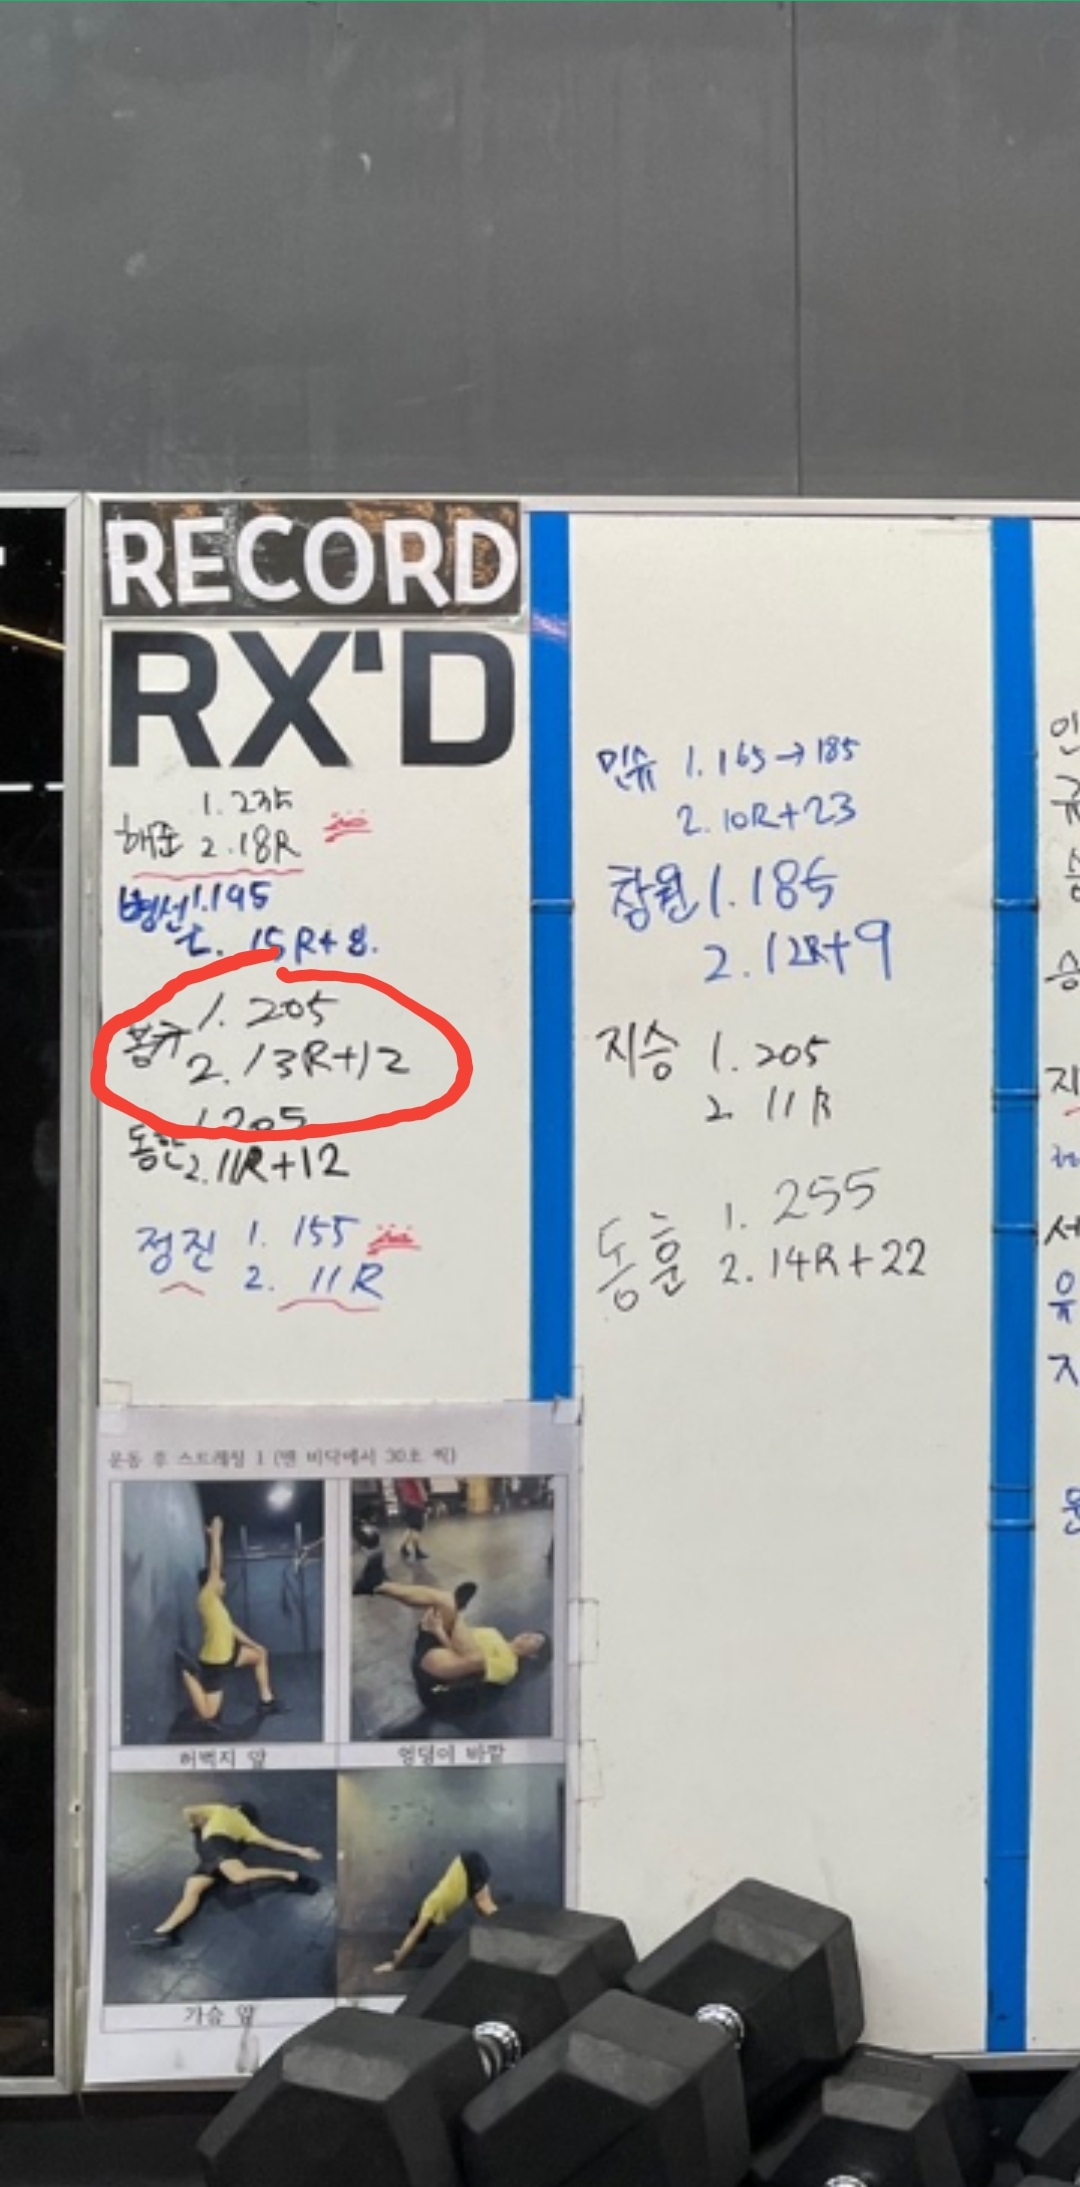 RECORD
RX'D
1. 235
해준 2. 18R
병선 1. 195
2. 15R+8.
봉규 1. 205
2. 13R+12
1. 205
동한 2. 11R+12
정진 1. 155
2. 11R
민슈 1. 165→185
2. 10R+23
창원 1. 185
2. 12R+9
지승 1. 205
2. 11R
동훈 1. 255
2. 14R+22
운동 후 스트레칭 1 (맨 바닥에서 30초 씩)
허벅지 앞
엉덩이 바깥
가슴 앞